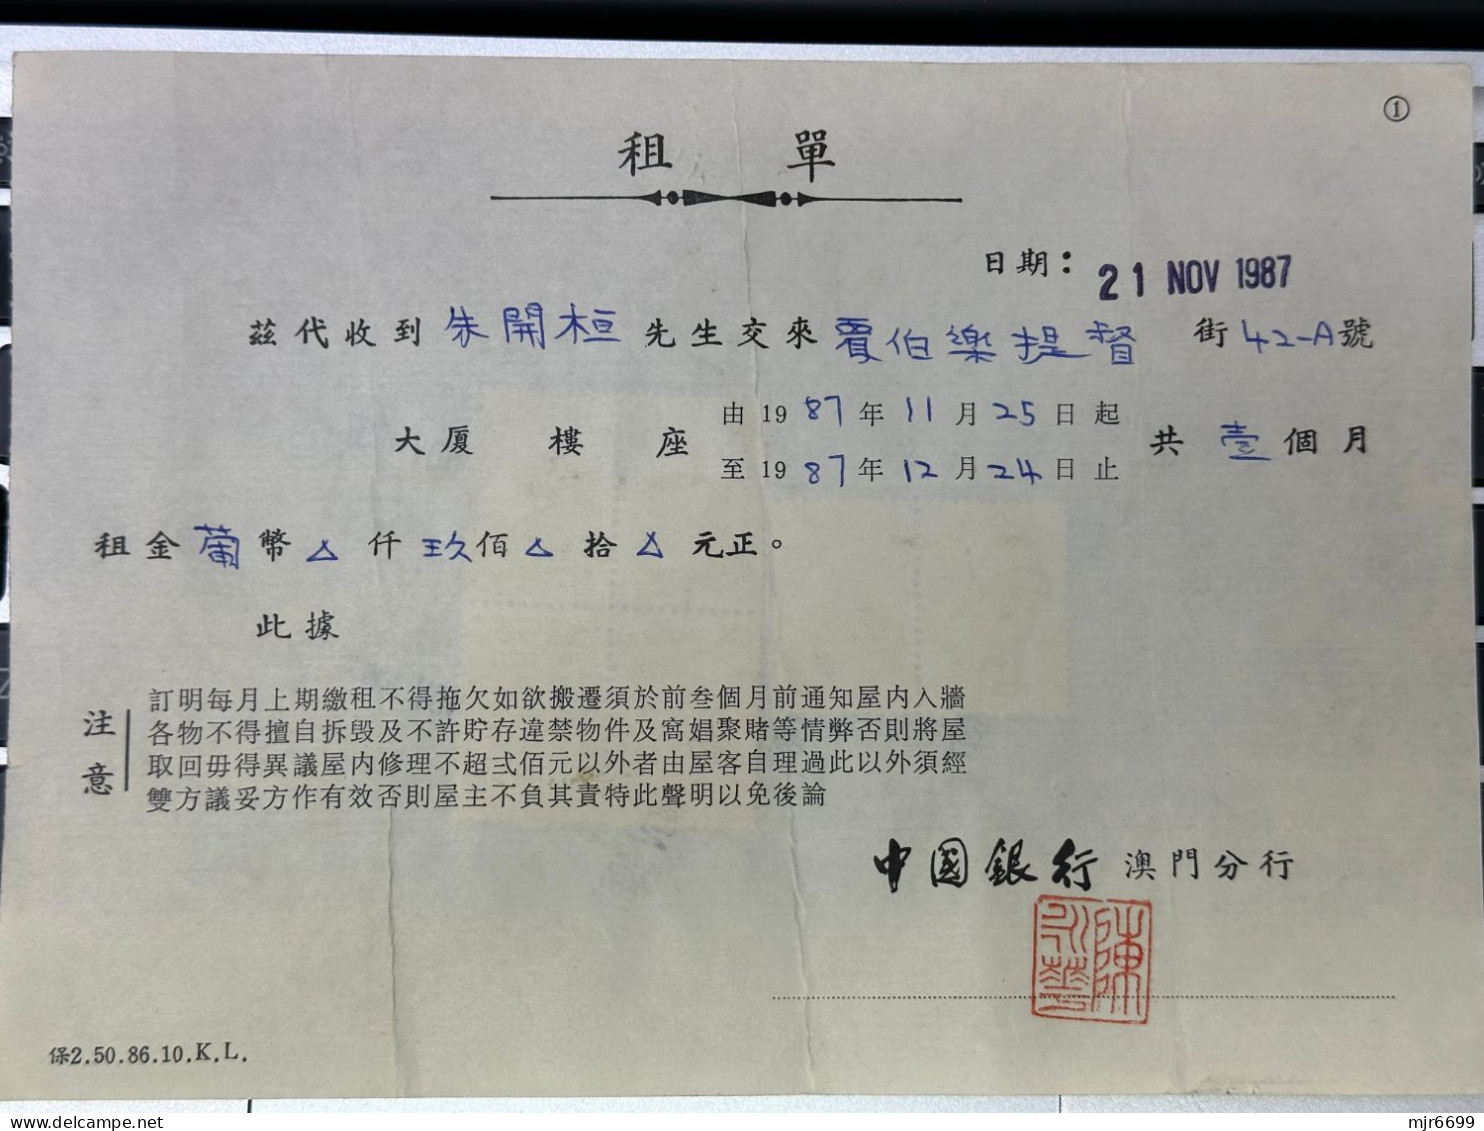 ①
租單
日期：21 NOV 1987
茲代收到朱開桓先生交來賈伯樂提督街42-A號
大厦樓座
由1987年11月25日起
至1987年12月24日止
共壹個月
租金葡幣△仟玖佰△拾△元正。
此據
注意
訂明每月上期繳租不得拖欠如欲搬遷須於前叁個月前通知屋內入牆
各物不得擅自拆毀及不許貯存違禁物件及窩娼聚賭等情弊否則將屋
取回毋得異議屋內修理不超弍佰元以外者由屋客自理過此以外須經
雙方議妥方作有效否則屋主不負其責特此聲明以免後論
中國銀行澳門分行
保2.50.86.10.K.L.
delcampe.net
mjr6699